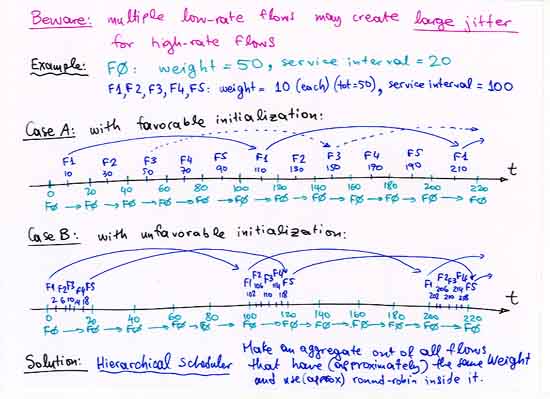 Beware: multiple low-rate flows may create large jitter
for high-rate flows
Example: FØ: weight = 50, service interval = 20
F1, F2, F3, F4, F5: weight = 10 (each) (tot=50), service interval = 100
Case A: with favorable initialization:
F1 F2 F3 F4 F5 F1 F2 F3 F4 F5 F1
10 30 50 70 90 110 130 150 170 190 210 t
0 20 40 60 80 100 120 140 160 180 200 220
FØ FØ FØ FØ FØ FØ FØ FØ FØ FØ FØ FØ
Case B: with unfavorable initialization:
F1 F2 F3 F4 F5 F1 F2 F3 F4 F5 F1 F2 F3 F4 F5
2 6 10 14 18 102 106 110 114 118 202 206 210 214 218 t
0 20 40 60 80 100 120 140 160 180 200 220
FØ FØ FØ FØ FØ FØ FØ FØ FØ FØ FØ FØ
Solution: Hierarchical scheduler Make an aggregate out of all flows
that have (approximately) the same weight
and use (approx) round-robin inside it.